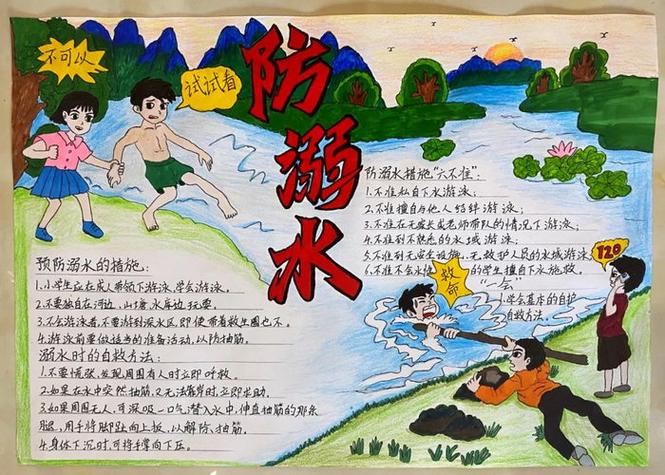 不可以
试试看
防溺水
预防溺水的措施:
1.小学生应在成人带领下游泳,学会游泳。
2.不要独自在河边、山塘、水库边、玩耍。
3.不会游泳者,不要游到深水区,即使带着救生圈也不。
4.游泳前要做适当的准备活动,以防抽筋。
溺水时的自救方法:
1.不要慌张,发现周围有人时立即呼救。
2.如果在水中突然抽筋,又无法靠岸时,立即求助。
3.如果周围无人,可深吸一口气潜入水中,伸直抽筋的那条
腿,用手将脚趾向上扳,以解除抽筋。
4.身体下沉时,可将手掌向下压。
防溺水措施"六不准":
1.不准私自下水游泳;
2.不准擅自与他人结伴游泳;
3.不准在无家长或老师带队的情况下游泳;
4.不准到不熟悉的水域游泳;
5.不准到无安全设施、无救护人员的水域游泳
6.不准不会水性的学生擅自下水施救。
"一会"
1.学会基本的自护
自救方法。
救命
120